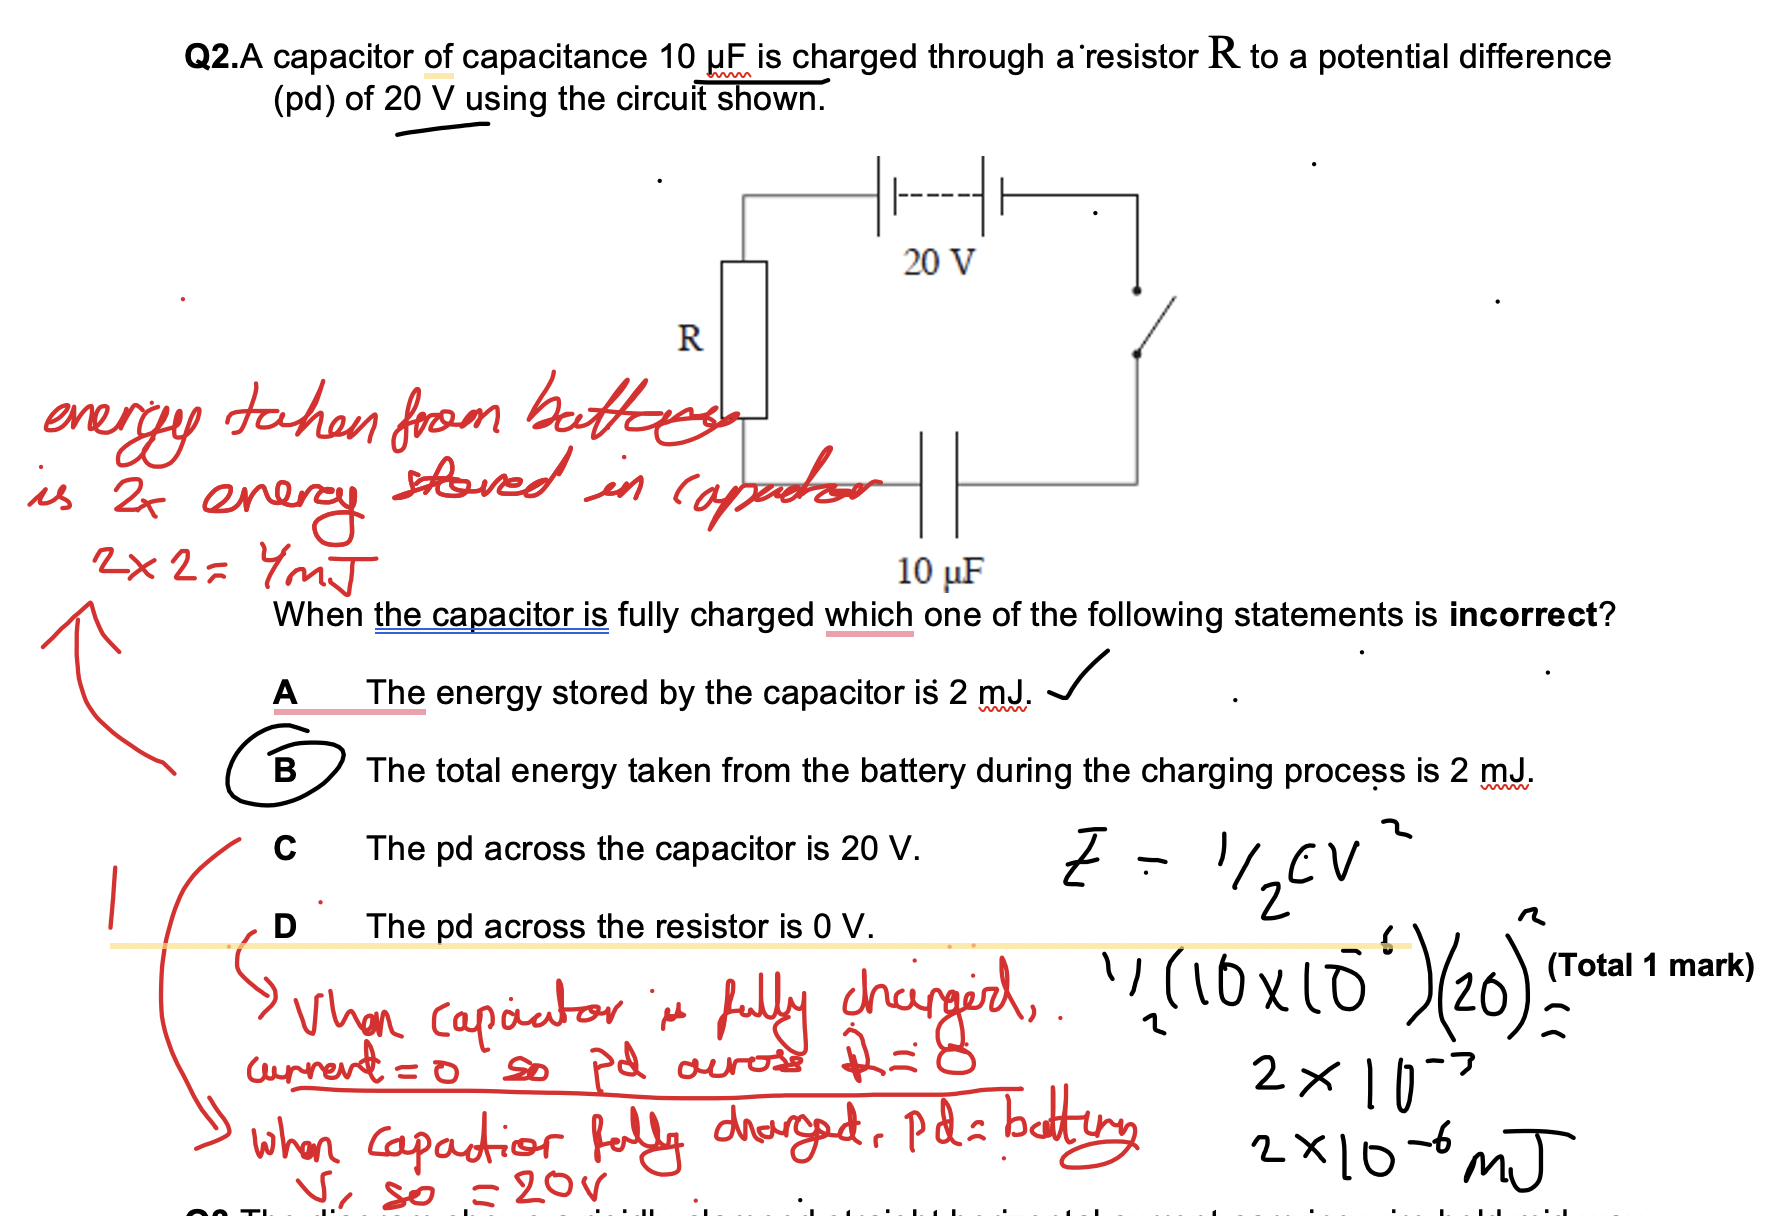 Q2.A capacitor of capacitance 10 µF is charged through a resistor R to a potential difference
(pd) of 20 V using the circuit shown.
20 V
R
energy taken from battery
is 2x energy stored in capacitor
2 x 2 = 4mJ
10 µF
When the capacitor is fully charged which one of the following statements is incorrect?
A The energy stored by the capacitor is 2 mJ. ✓
B The total energy taken from the battery during the charging process is 2 mJ.
C The pd across the capacitor is 20 V.
E = 1/2 CV²
D The pd across the resistor is 0 V.
(Total 1 mark)
1/2 (10 x 10⁻⁶)(20)² =
when capacitor is fully charged,
current = 0 so pd across R = 0
2 x 10⁻³
when capacitor fully charged, pd = battery
2 x 10⁻⁶ mJ
V, so = 20V